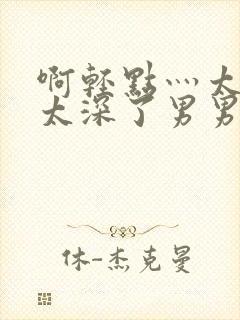 啊轻點灬太
太深了男男
休-杰克曼